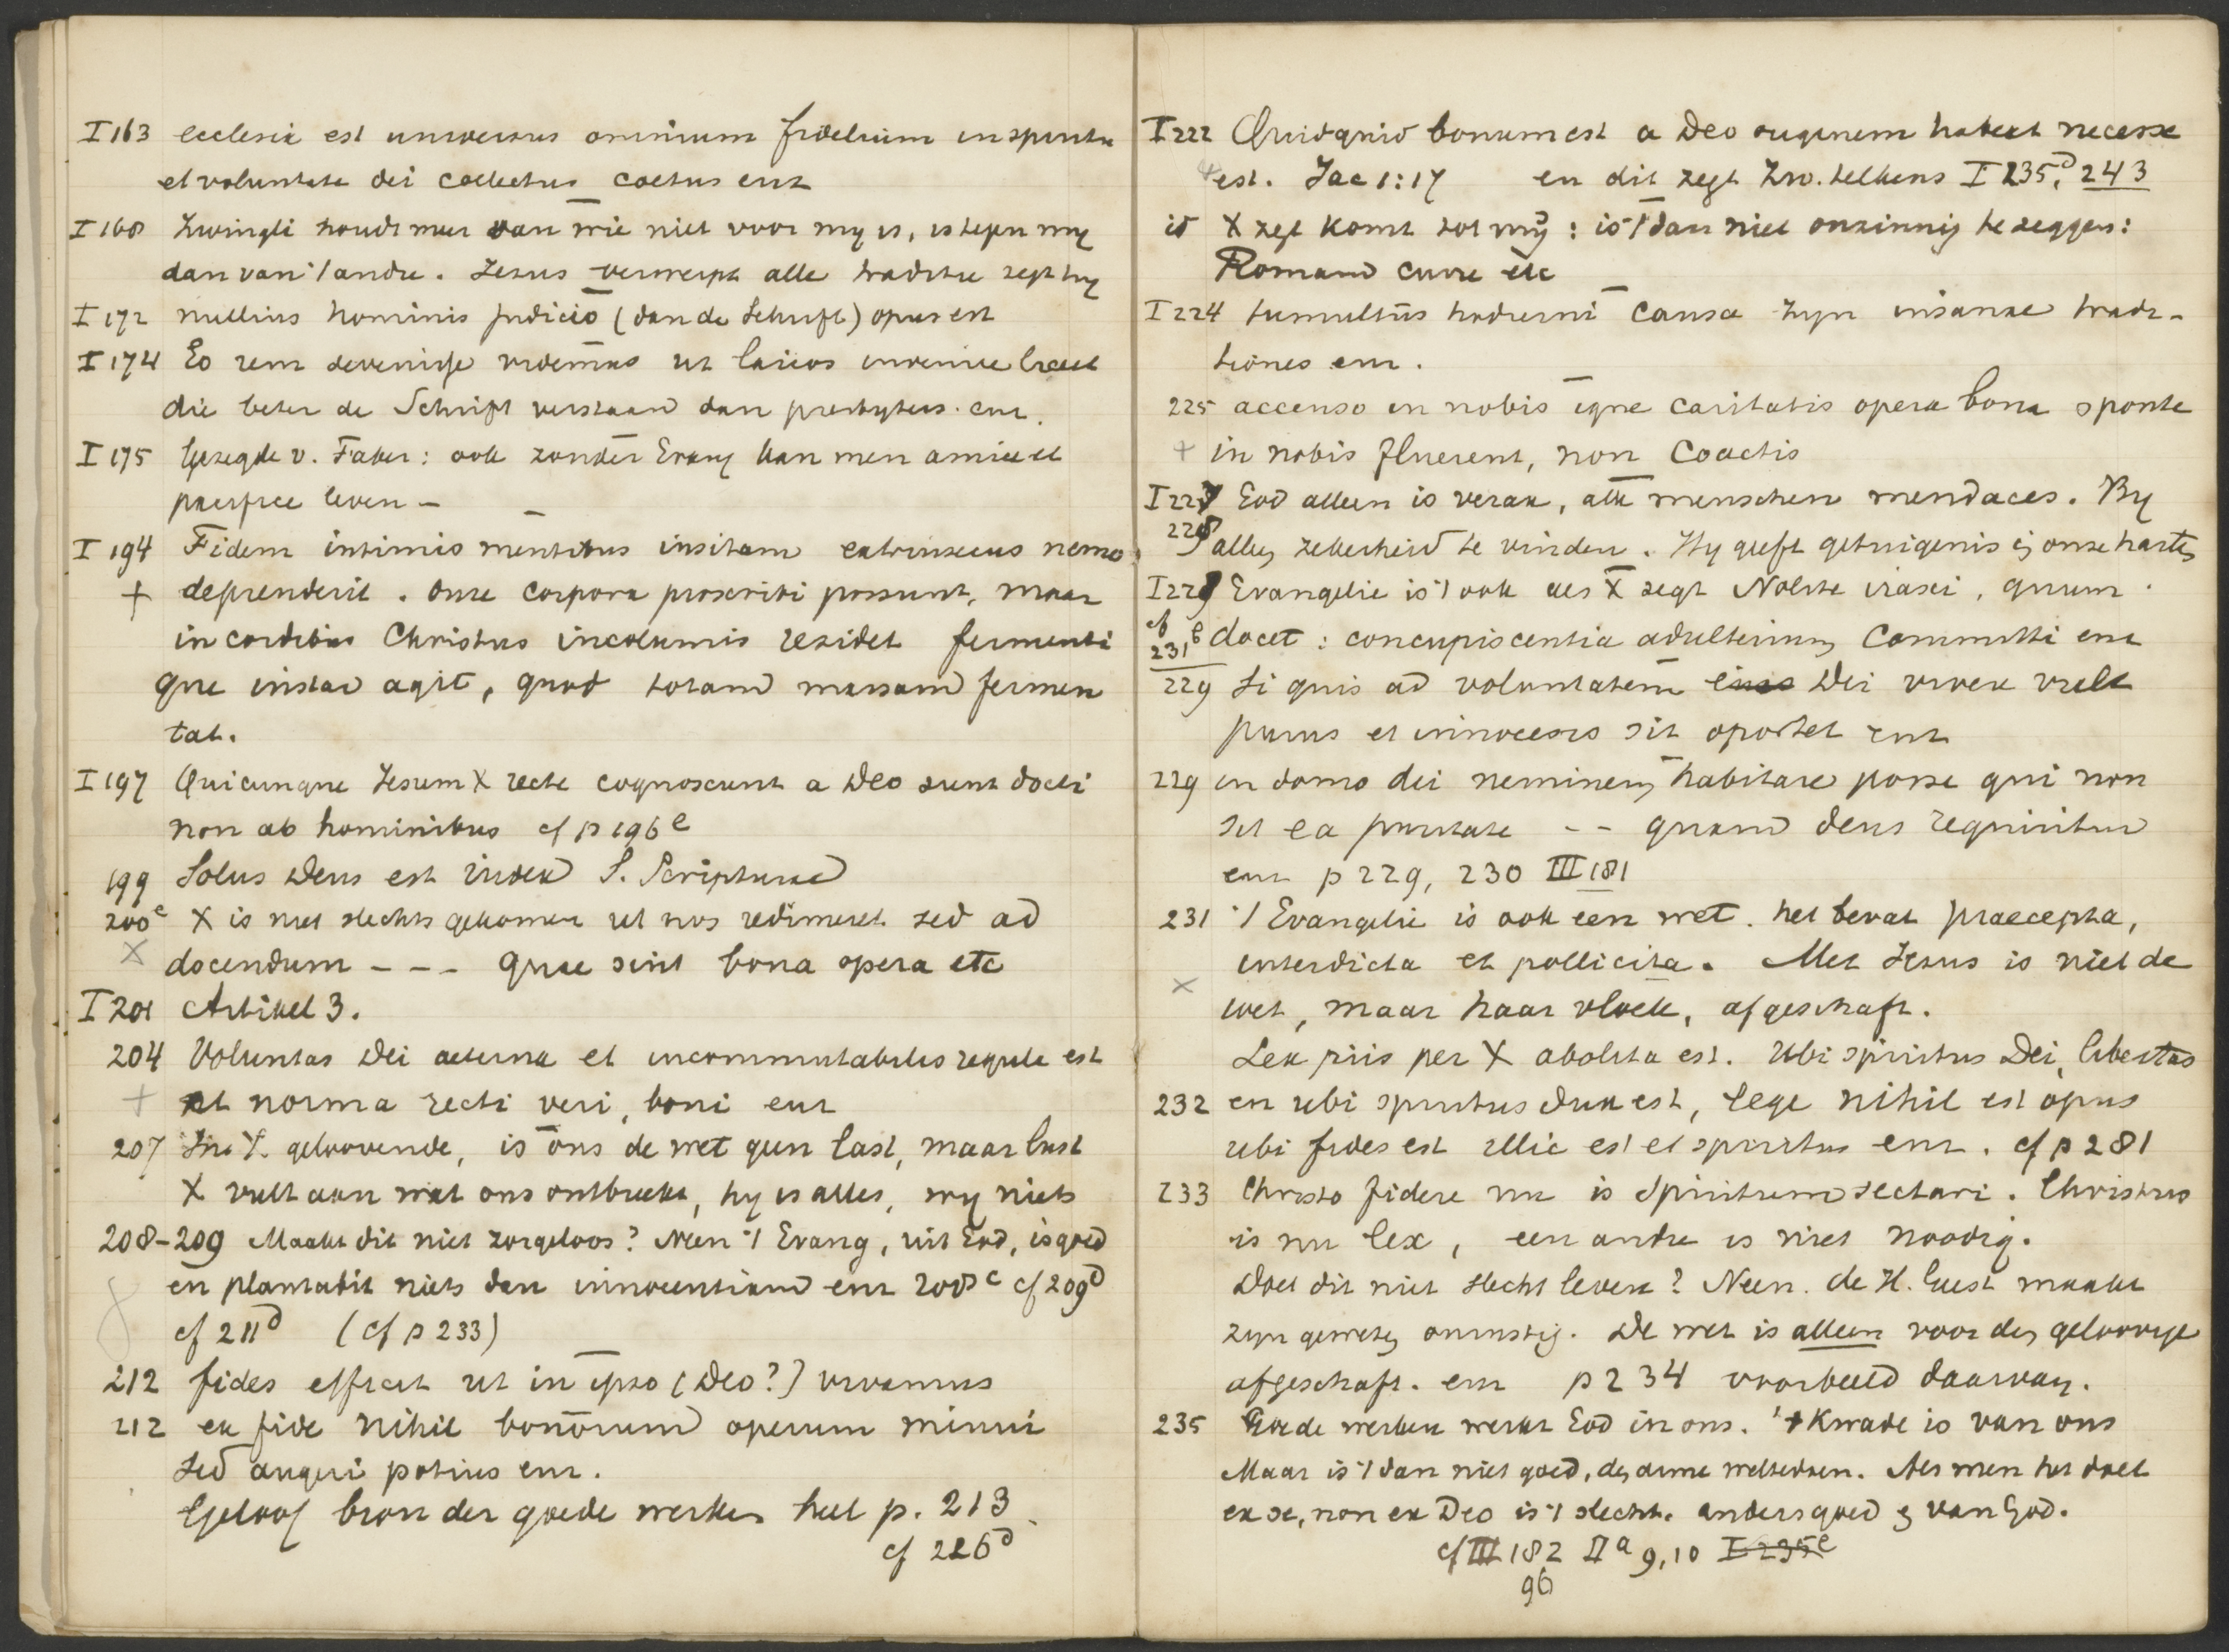 I 163 ecclesia est universus omnium fidelium in spiritu
et voluntate dei collectus coetus enz
I 168 Zwingli houdt meer van wie niet voor my is, is tegen my
dan van 't andre. Jezus verwerpt alle traditie zegt hy
I 172 nullius hominis judicio (dan de Schrift) opus est
I 174 Eo rem devenisse videmus ut laicos invenire liceat
die beter de Schrift verstaan dan presbyters. enz.
I 175 Gezegde v. Faber: ook zonder Evang kan men amice et
pacifice leven –
I 194 Fidem intimis mentibus insitam extrinsecus nemo
+ deprenderit. Onze corpora proscribi possunt, maar
in cordibus Christus incolumis residet fermenti
que instar agit, quod totam massam fermen
tat.
I 197 Quicunque Jesum X recte cognoscunt a Deo sunt docti
non ab hominibus cf p 196 e
199 Solus Deus est index S. Scripturae
200 c X is niet slechts gekomen ut nos redimeret sed ad
X docendum - - - quae sint bona opera etc
I 201 Artikel 3.
204 Voluntas Dei aeterna et incommutabilis regula est
+ et norma recti veri, boni enz
207 In X. geloovende, is ons de wet geen last, maar lust
X vult aan wat ons ontbreekt, hy is alles, wy niets
208–209 Maakt dit niet zorgeloos? Neen 't Evang, uit God, is goed
en plantabit niets dan innocentiam enz 208 c cf 209 d
cf 211 d (cf p 233)
212 fides efficit ut in ipso (Deo?) vivamus
212 ex fide nihil bonorum operum minui
sed augeri potius enz.
Geloof bron der goede werken heel p. 213
cf 226 d
I 222 Quidquid bonum est a Deo originem habeat necesse
est. Jac 1:17 en dit zegt Zw. telkens I 235 d, 243
id X zegt komt tot mij: is 't dan niet onzinnig te zeggen:
Romam curre etc
I 224 tumultus hodierni causa zyn insanae tradi-
tiones enz.
225 accenso in nobis igne caritatis opera bona sponte
+ in nobis fluerent, non coactis
I 227 God alleen is verax, alle menschen mendaces. By
228 allen zekerheid te vinden. Hy geeft getuigenis in onze harten
I 229 Evangelie is 't ook als X zegt Nolite irasci, quum
cf 231, b docet: concupiscentia adulterium committi enz
229 Si quis ad voluntatem eius Dei vivere velit
purus et innocens sit oportet enz
229 in domo dei neminem habitare posse qui non
sit ea puritate - - quam deus requiritur
enz p 229, 230 III 181
231 't Evangelie is ook een wet. het bevat praecepta,
interdicta et pollicita. Met Jezus is niet de
X wet, maar haar vloek, afgeschaft.
Lex piis per X abolita est. Ubi spiritus Dei, libertas
232 en ubi spiritus dux est, lege nihil est opus
ubi fides est illic est et spiritus enz. cf p 281
233 Christo fidere nu is Spiritum sectari. Christus
is nu lex, een andre is niet noodig.
Doet dit niet slecht leven? Neen. de H. Geest maakt
zyn geweten onrustig. De wet is alleen voor den geloovige
afgeschaft. enz p 234 voorbeeld daarvan.
235 Goede werken werkt God in ons. 't Kwade is van ons
Maar is 't dan niet goed, den arme weltedoen. Als men het doet
ex se, non ex Deo is 't slecht. anders goed en van God.
cf III 182 II a 9, 10 I 235 e
96